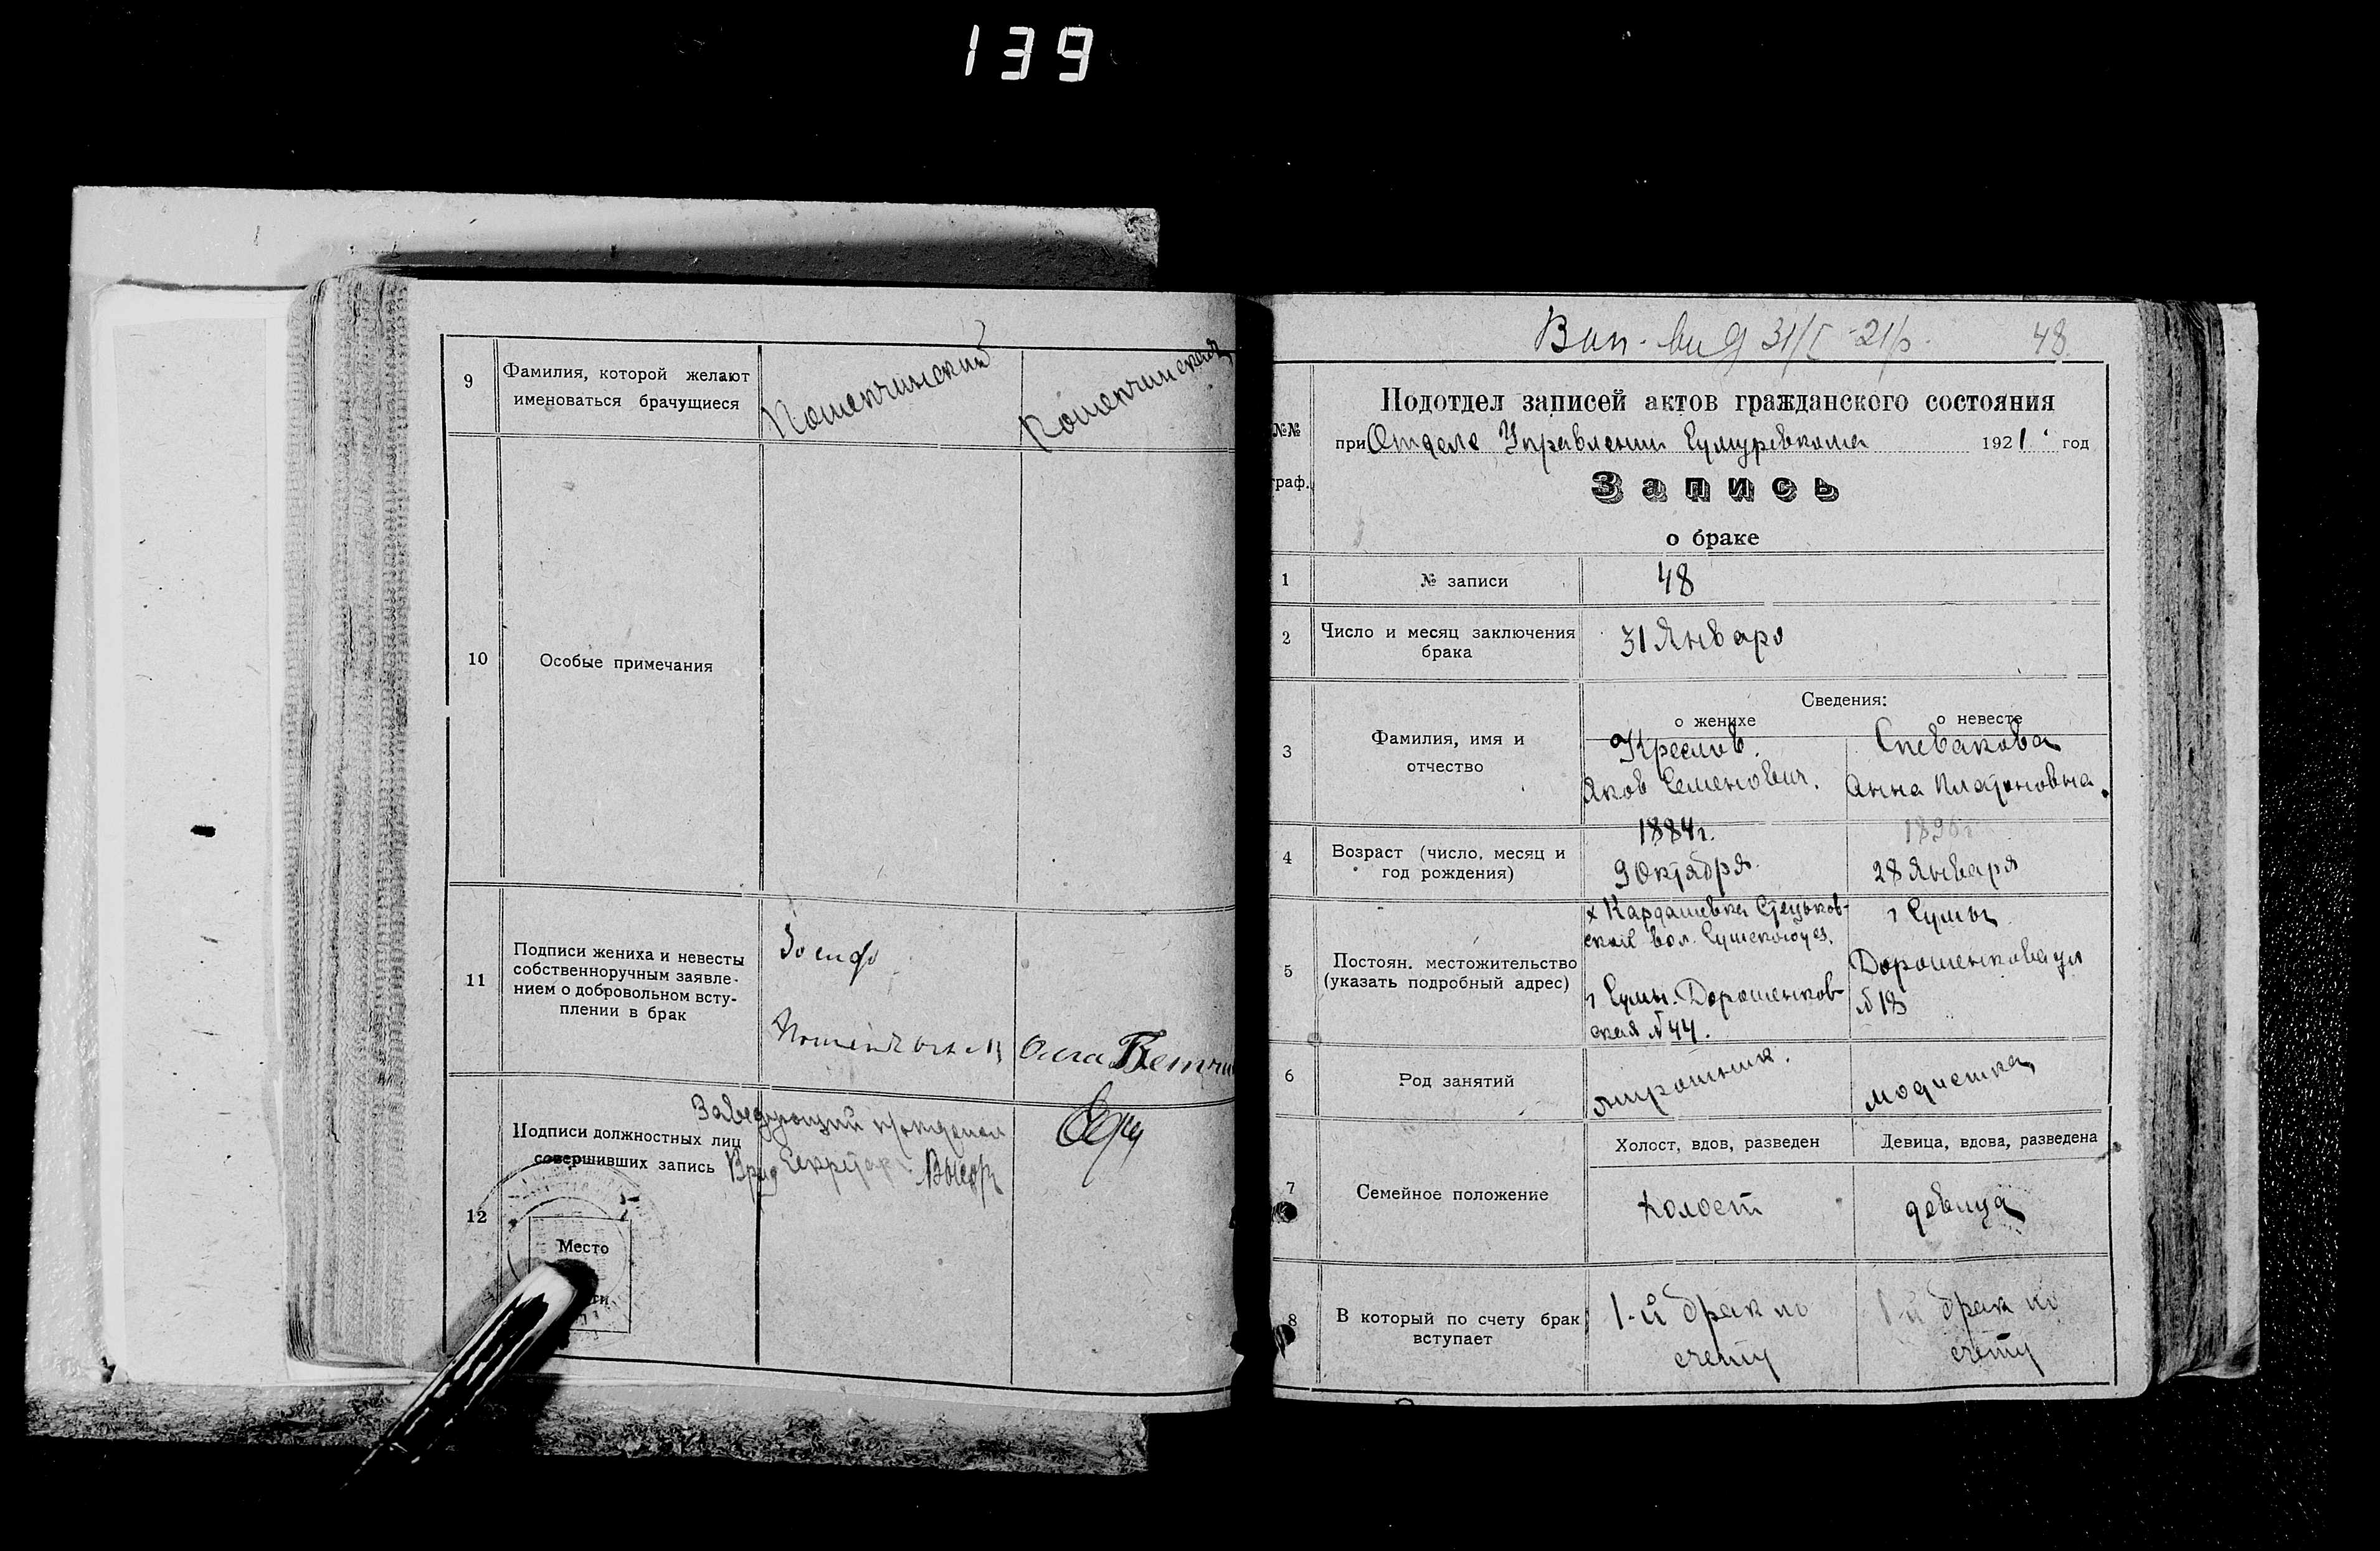 139
9
Фамилия, которой желают
именоваться брачущиеся
10
Особые примечания
11
Подписи жениха и невесты
собственноручным заявле-
нием о добровольном всту-
плении в брак
Заведующий
Подписи должностных лиц
совершивших запись
Секретарь
12
Место
48
Подотдел записей актов гражданского состояния
№№
граф.
при Отделе Управлении Сумуревкома 1921 год
Запись
о браке
1
№ записи
48
2
Число и месяц заключения
брака
31 Января
Сведения:
о женихе
о невесте
3
Фамилия, имя и
отчество
Яков Семенович.
Спевакова
Анна Платоновна.
4
Возраст (число, месяц и
год рождения)
1884 г.
9 Октября
28 Января
5
Постоян. местожительство
(указать подробный адрес)
х Кардашевка Стецьков-
ской вол. Сумского уез.
г Сумы. Дорошенков-
ская №44.
г Сумы
Дорошенкова ул
№ 18
6
Род занятий
модистка
7
Семейное положение
Холост, вдов, разведен
Девица, вдова, разведена
холост
девица
8
В который по счету брак
вступает
1-й брак по
счету
1-й брак по
счету